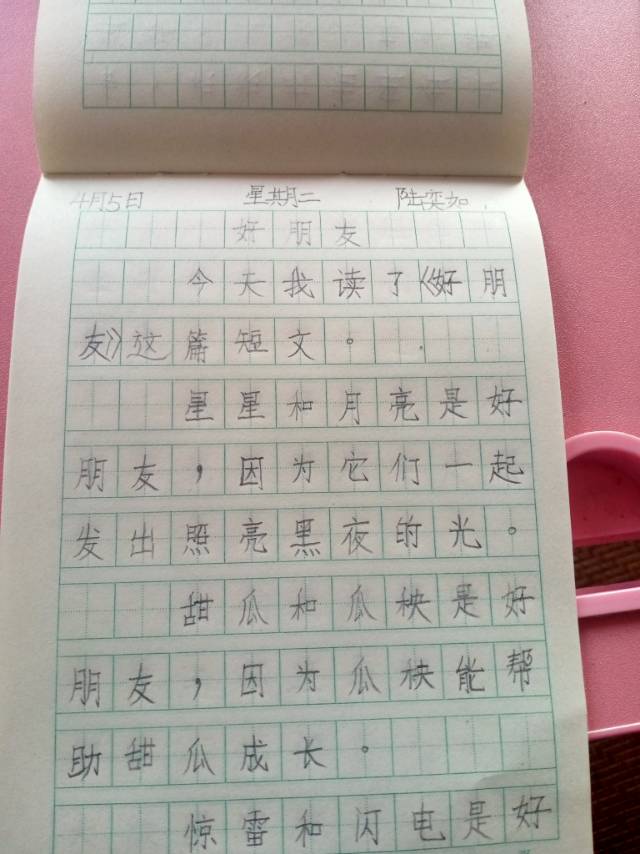 4月5日 星期二 陆奕如
好朋友
今天我读了《好朋
友》这篇短文。
星星和月亮是好
朋友，因为它们一起
发出照亮黑夜的光。
甜瓜和瓜秧是好
朋友，因为瓜秧能帮
助甜瓜成长。
惊雷和闪电是好